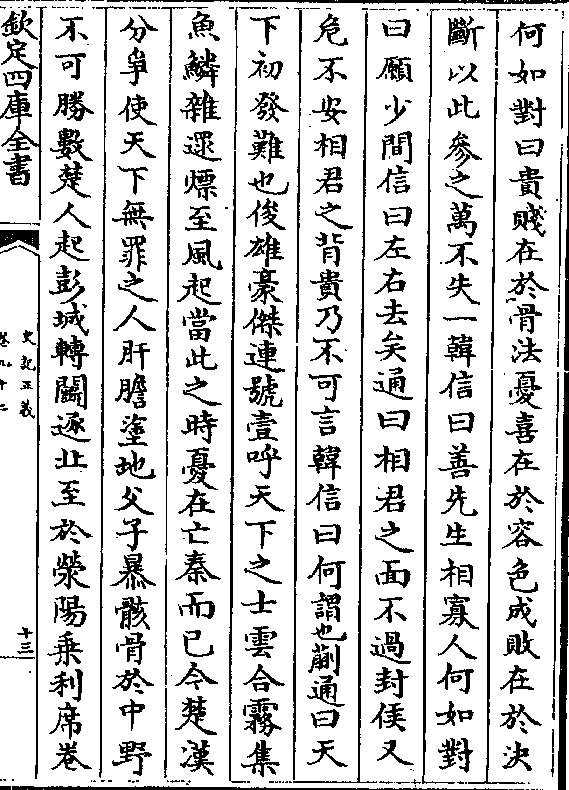 何如對曰貴賤在於骨法憂喜在於容色成敗在於決
斷以此參之萬不失一韓信曰善先生相寡人何如對
曰願少間信曰左右去矣通曰相君之面不過封侯又
危不安相君之背貴乃不可言韓信曰何謂也蒯通曰天
下初發難也俊雄豪傑連號壹呼天下之士雲合霧集
魚鱗雜遝熛至風起當此之時憂在亡秦而已今楚漢
分爭使天下無罪之人肝膽塗地父子暴骸骨於中野
不可勝數楚人起彭城轉鬭逐北至於滎陽乗利席卷
欽定四庫全書
史記正義
卷九十二
十三